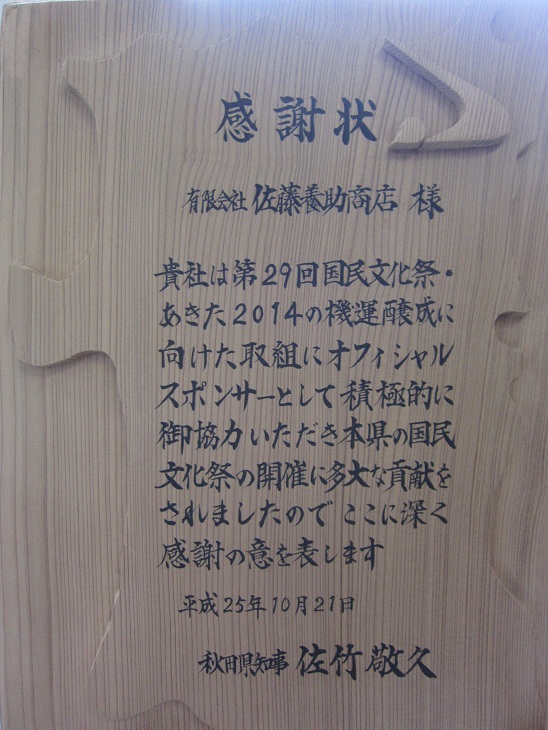 感謝状
有限会社 佐藤養助商店 様
貴社は第29回国民文化祭・
あきた2014の機運醸成に
向けた取組にオフィシャル
スポンサーとして積極的に
御協力いただき本県の国民
文化祭の開催に多大な貢献を
されましたのでここに深く
感謝の意を表します
平成25年10月21日
秋田県知事 佐竹敬久